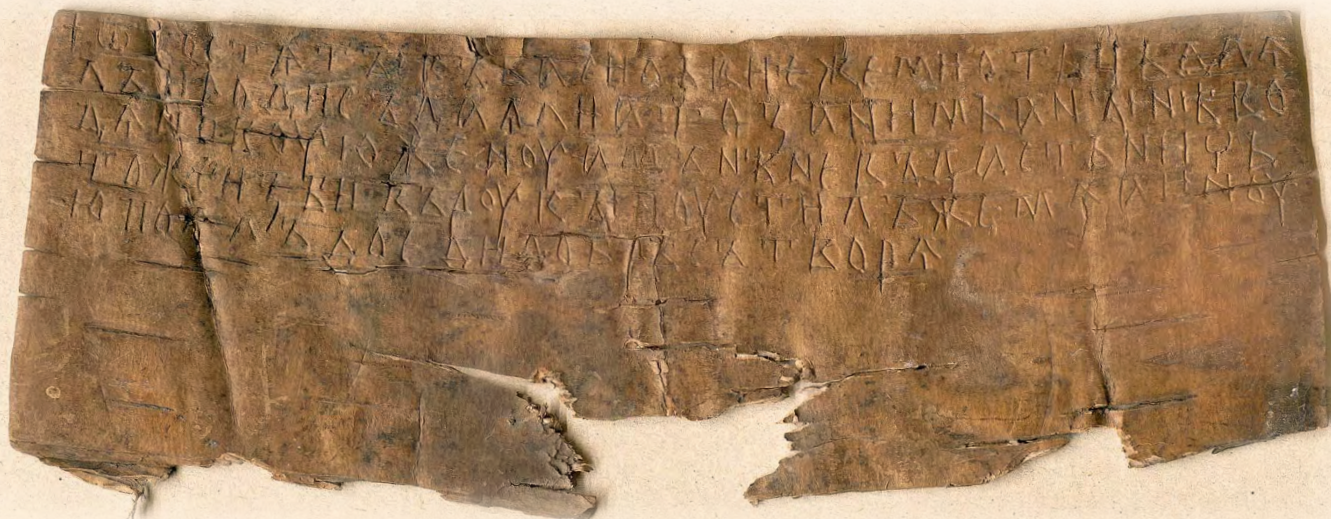 +ѿгостѧтꙑкъвасильвиѥжемиотьцьдаꙗ
лъиродисъдаꙗлиатозанимьанꙑнѣво
дѧновоуюженоуамънѣневъдастьничь
тожеизбивъроукꙑпоустилъжемѧаиноу
юпоꙗлъдоедидобрѣсътворѧ